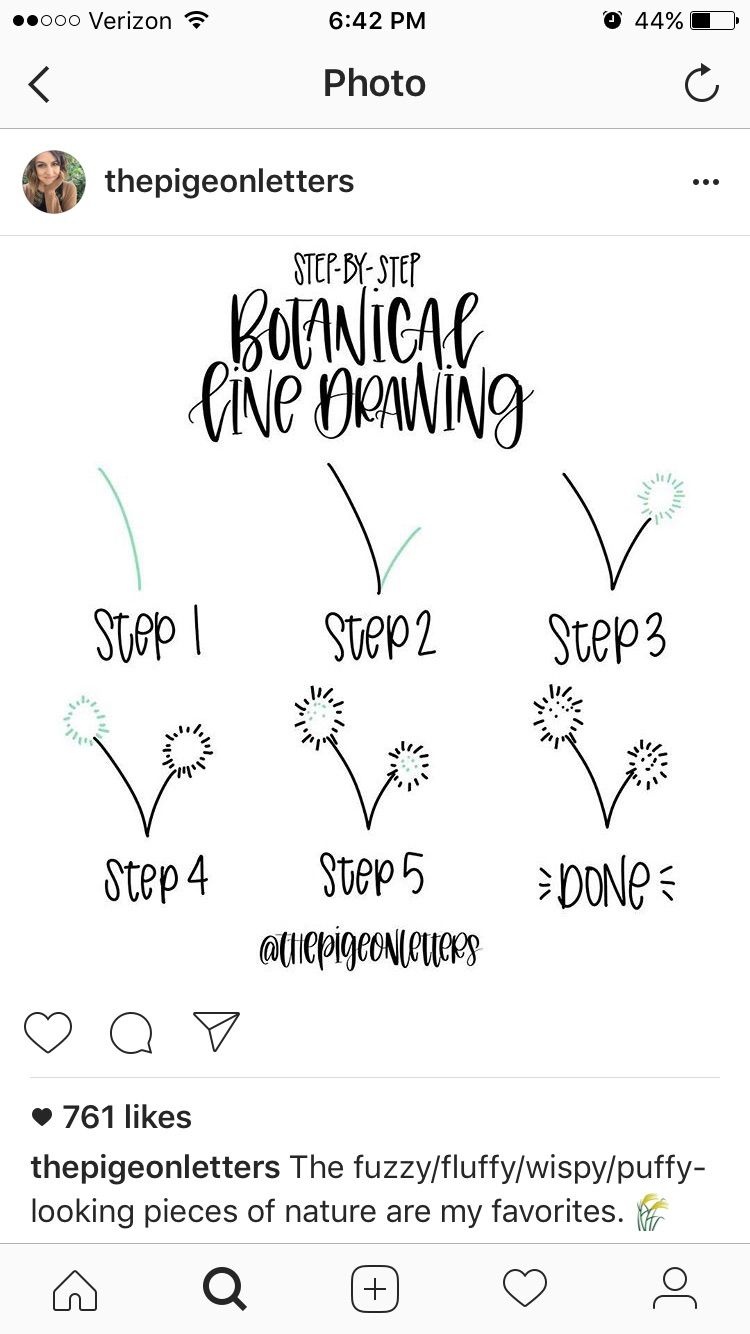 Verizon 6:42 PM 44%
Photo
thepigeonletters
STEP-BY-STEP
BOTANICAL
LINE DRAWING
Step 1 Step 2 Step 3
Step 4 Step 5 DONE
@thepigeonletters
761 likes
thepigeonletters The fuzzy/fluffy/wispy/puffy-
looking pieces of nature are my favorites. 🌾